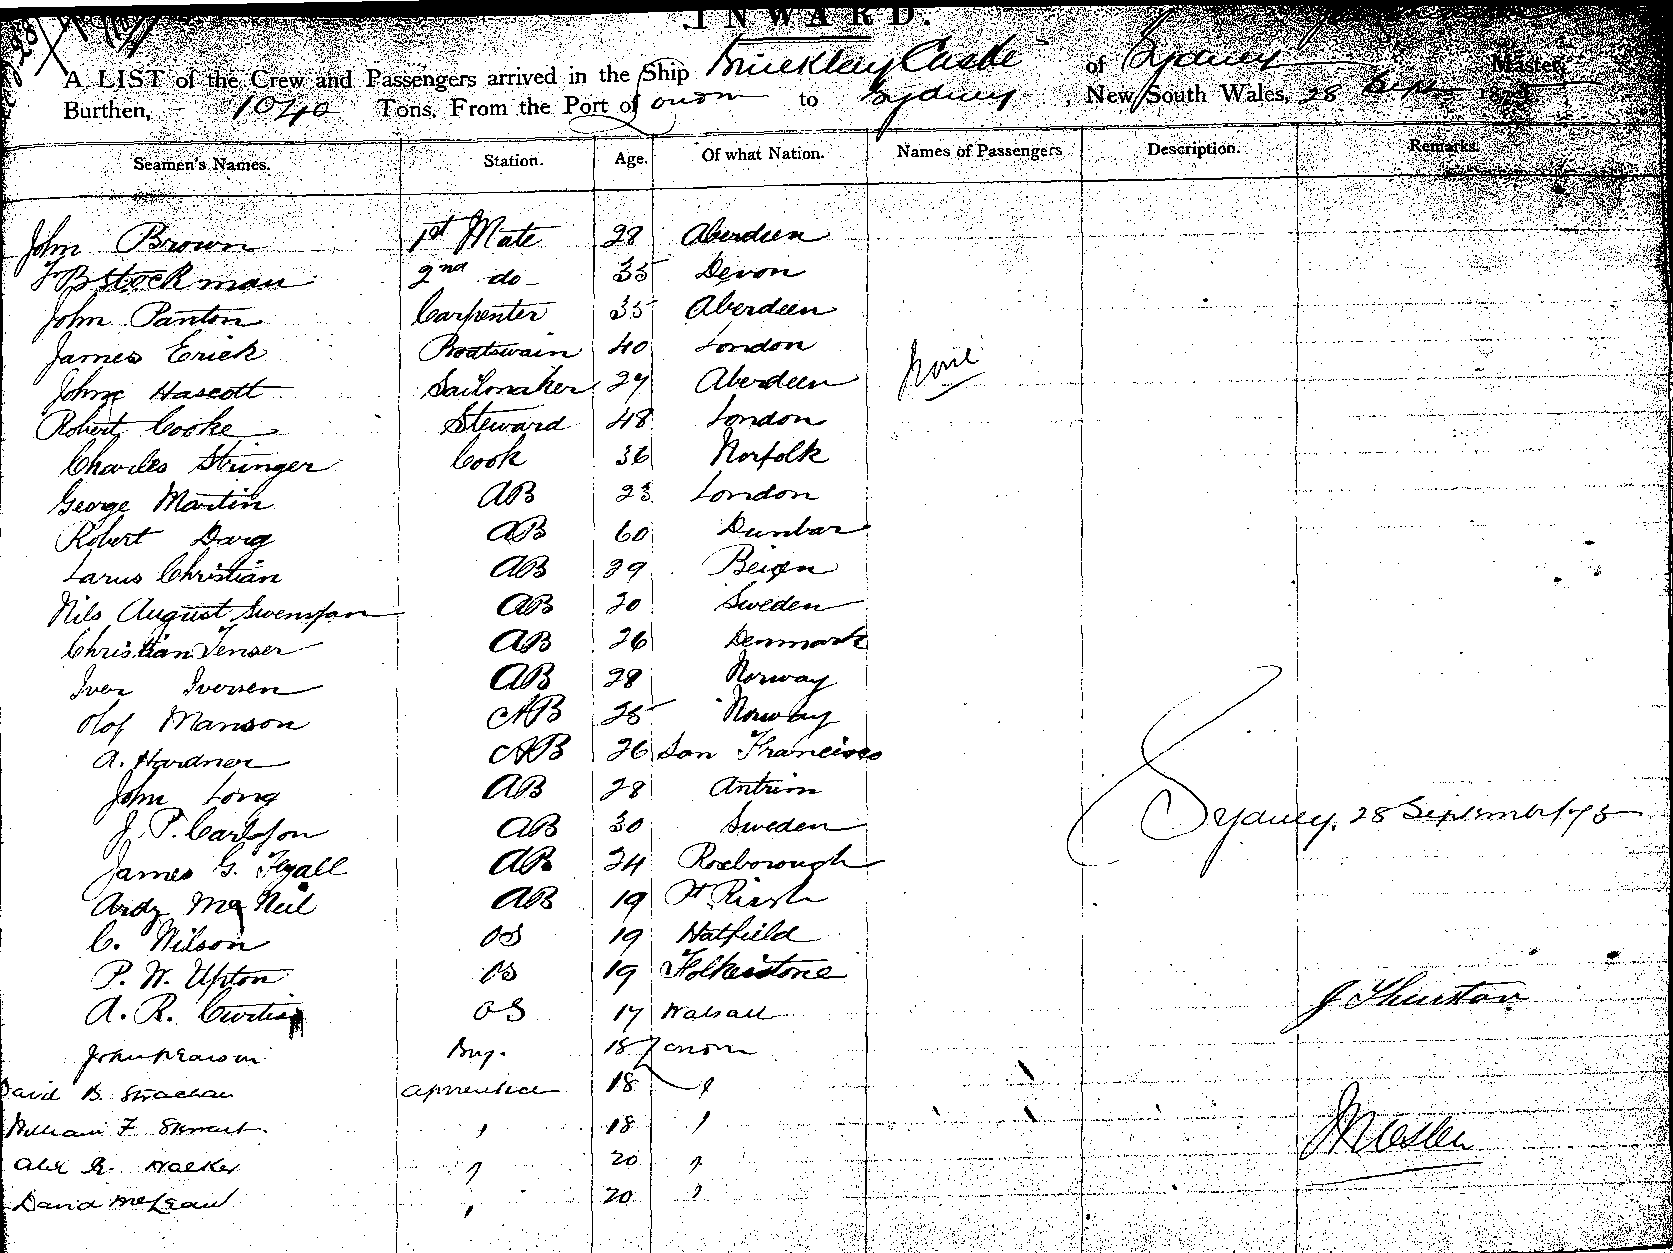 INWARD.
A LIST of the Crew and Passengers arrived in the Ship Brucklay Castle of Sydney Master,
Burthen, 1040 Tons, From the Port of London to Sydney, New South Wales, 28 Sept
Seamen's Names. Station. Age. Of what Nation. Names of Passengers Description. Remarks.
John Brown 1st Mate 28 Aberdeen
Stockman 2nd do 35 Devon
John Panton Carpenter 35 Aberdeen
James Erick Boatswain 40 London
None
John Hascott Sailmaker 27 Aberdeen
Robert Cooke Steward 48 London
Charles Stringer Cook 36 Norfolk
George Martin AB 23 London
Robert Darg AB 60 Dunbar
Larus Christian AB 39
Nils August Swensson AB 20 Sweden
Christian Jenser AB 26 Denmark
Iver Iversen AB 28 Norway
Olof Manson AB 25 Norway
A. Hardner AB 26 San Francisco
John Long AB 28 Antrim
Sydney, 28 September 75
J. P. Carlsson AB 30 Sweden
James G. Fyall AB 24 Roxborough
Andy McNeil AB 19
C. Wilson OS 19 Hatfield
P. W. Upton OS 19 Folkestone
J Thurston
A. R. Curtis OS 17 Walsall
John Pearson Boy. 18 London
David B. Strachan apprentice 18 "
William F. Stewart " 18 "
Alex R. Walker " 20 "
David McLean " 20 "